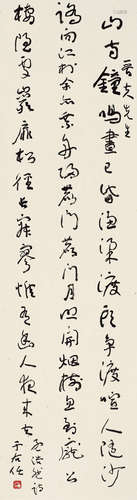 先生
山寺鐘鳴晝已昏漁梁渡頭爭渡喧人隨沙
路向江村余亦乘舟歸鹿門鹿門月照開煙樹忽到龐公
棲隱處巖扉松徑長寂寥惟有幽人夜來去
孟浩然詩
于右任